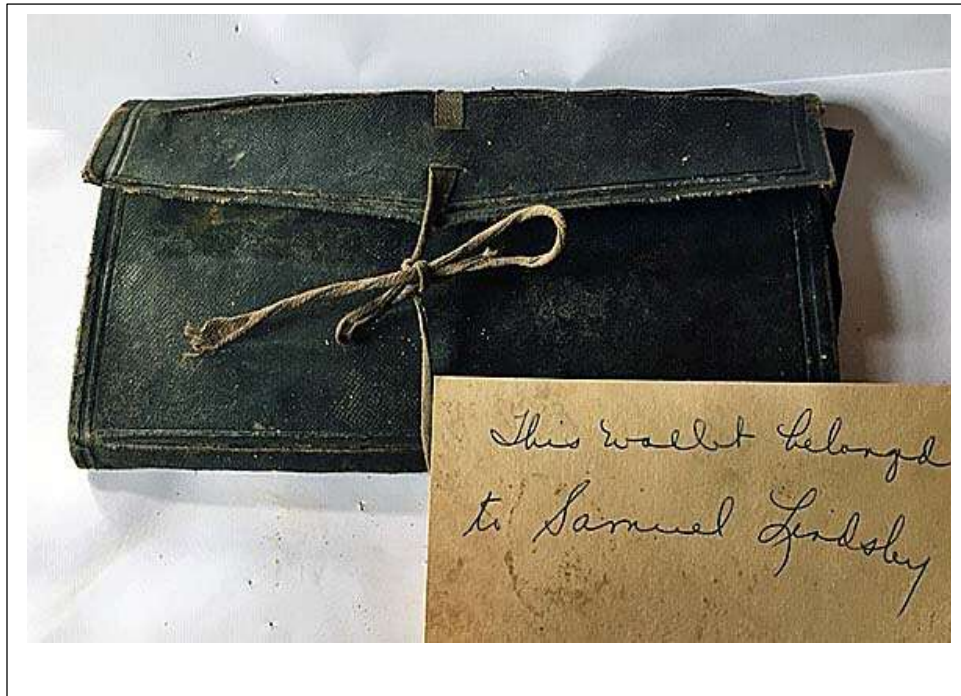 This wallet belonged
to Samuel Lindsley